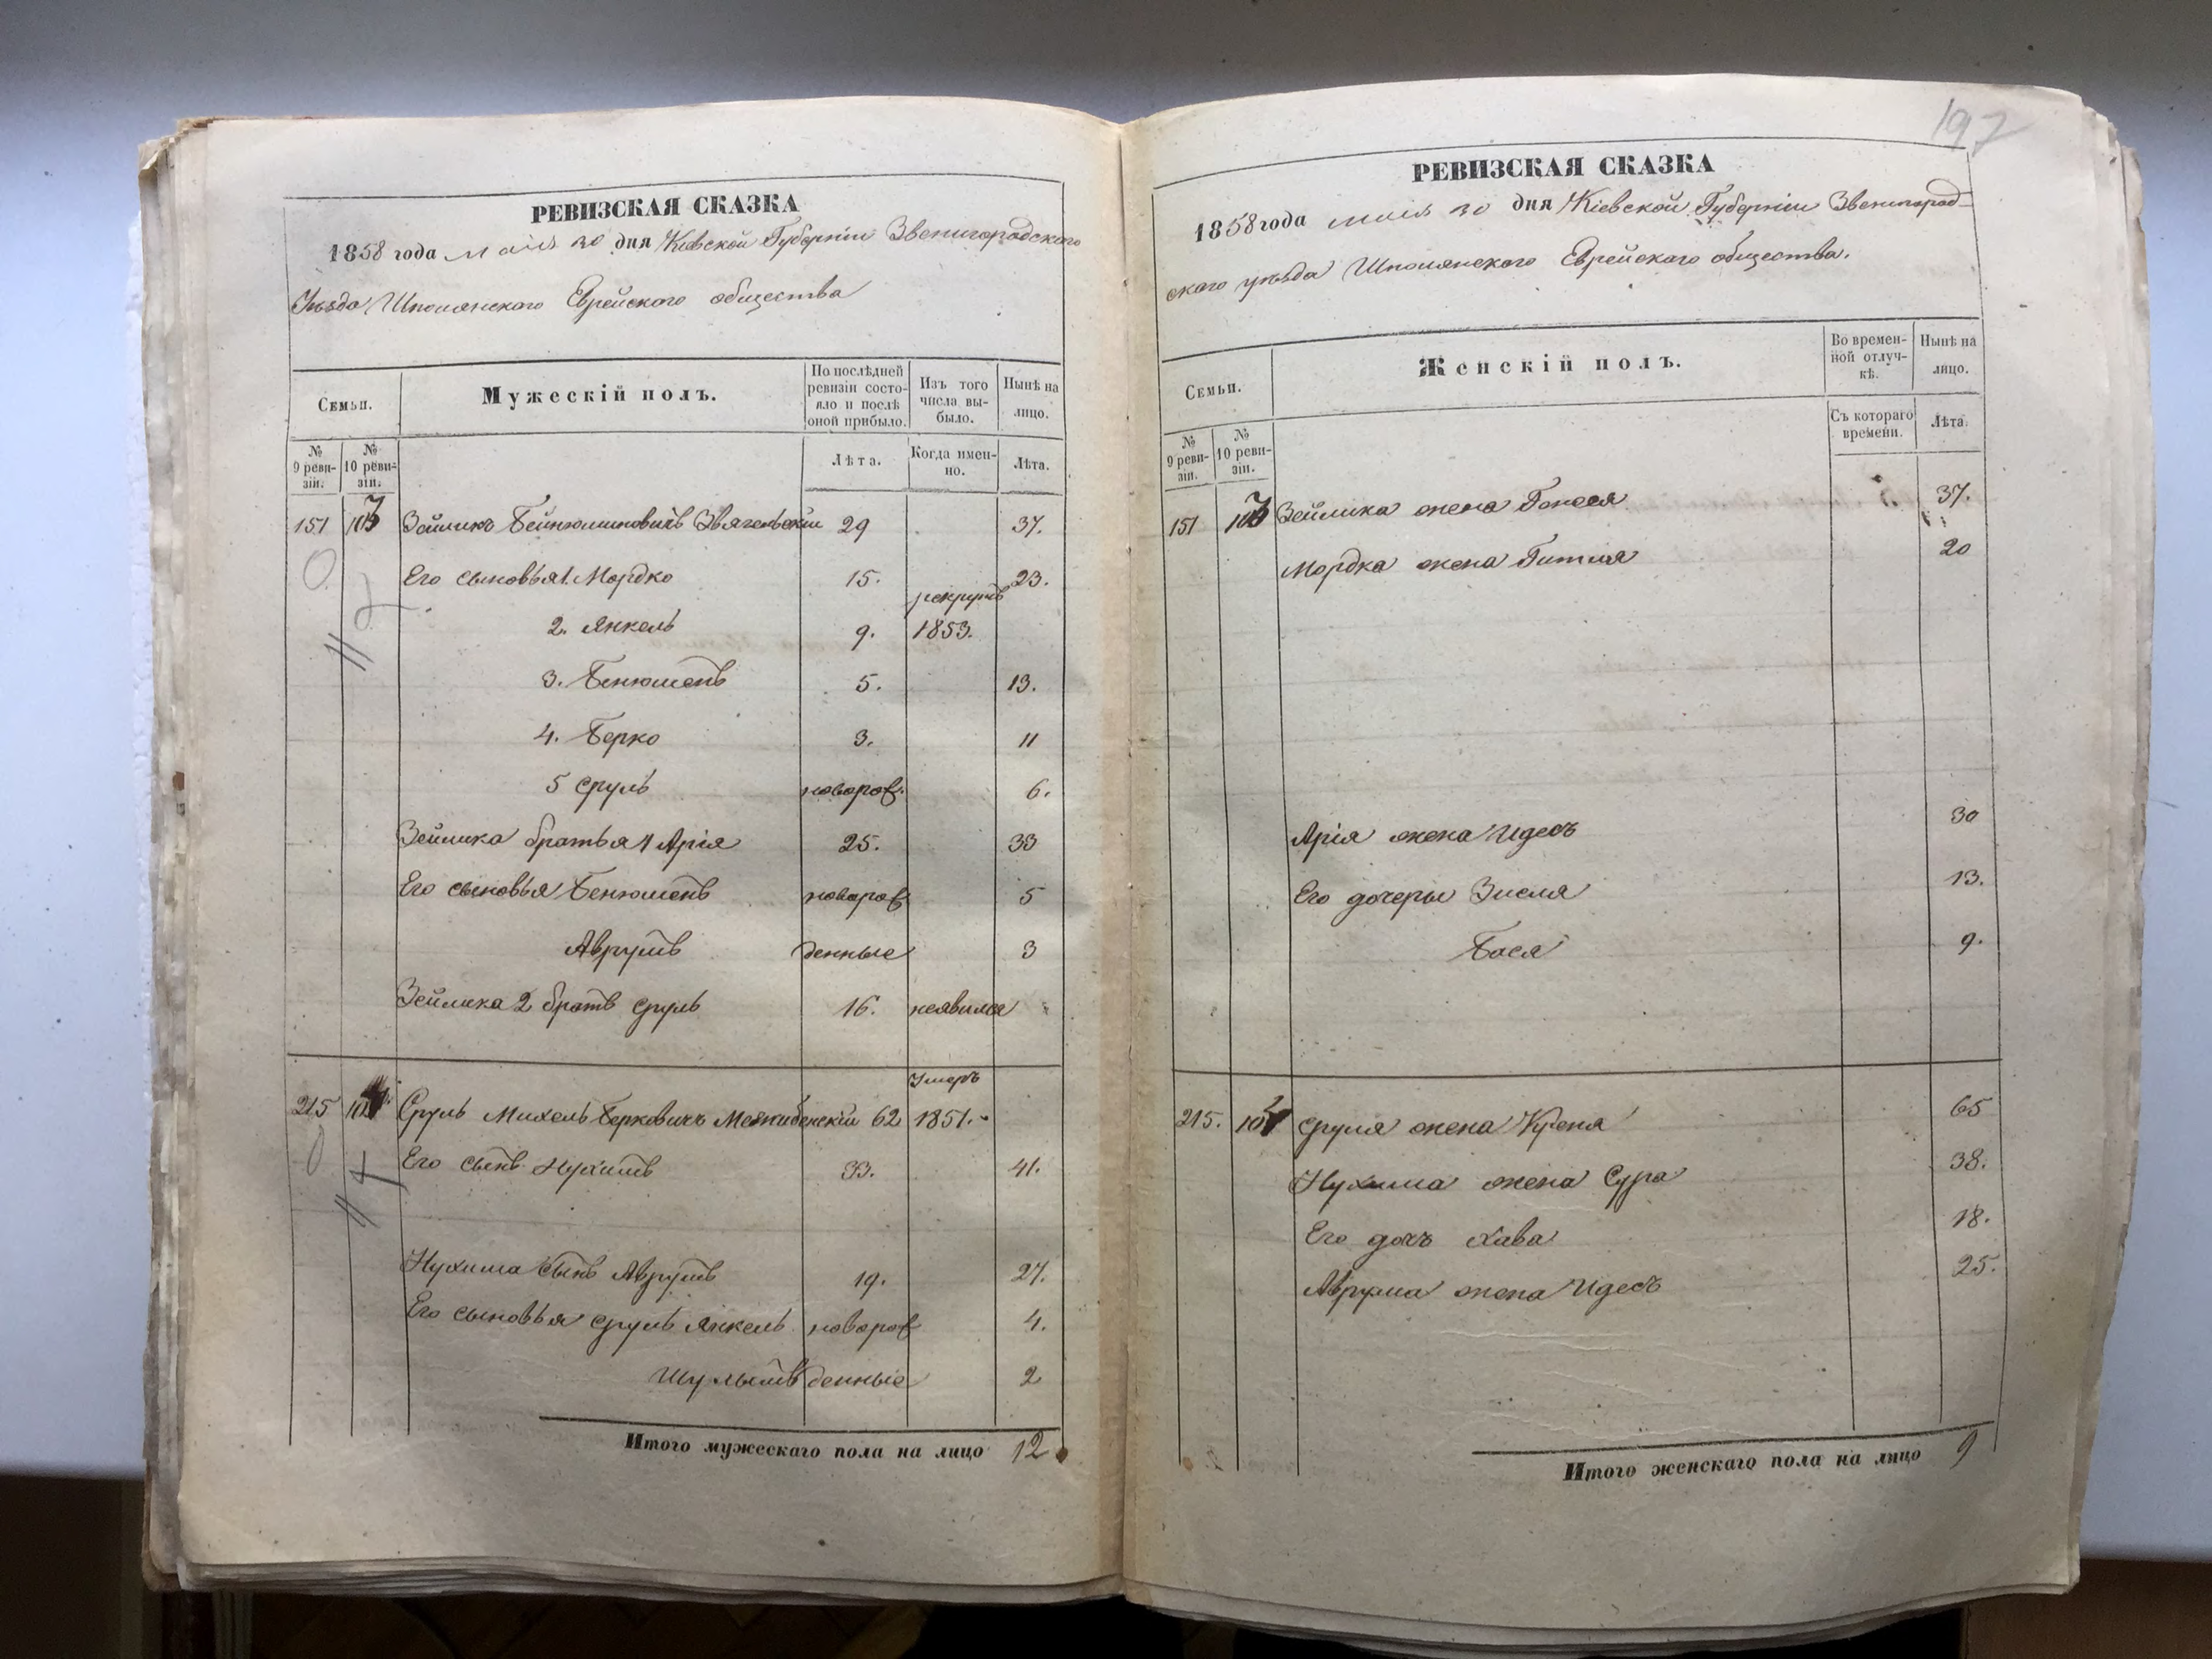 РЕВИЗСКАЯ СКАЗКА
1858 года маія 30 дня Кіевской Губерніи Звенигородского
Уѣзда Шполянского Еврейского общества
Семьи.
Мужескій полъ.
По послѣдней ревизіи состояло и послѣ оной прибыло.
Изъ того числа выбыло.
Нынѣ на лицо.
№ 9 ревизіи.
№ 10 ревизіи.
Лѣта.
Когда именно.
Лѣта.
151 103 Зейликъ Бейнюминовичъ Звягельскій 29 37.
Его сыновья 1. Мордко 15. 23.
рекрутъ
2. Янкель 9. 1853.
3. Бенюменъ 5. 13.
4. Берко 3. 11
5 Сруль новорож. 6.
Зейлика братья 1 Арія 25. 33
Его сыновья Бенюменъ новорож 5
Аврумъ денные 3
Зейлика 2 братъ Сруль 16. неявился
Умеръ
215 104 Сруль Михель Берковичъ Межибенскій 62 1851.
Его сынъ Нухимъ 33. 41.
Нухима сынъ Аврумъ 19. 27.
Его сыновья Сруль Янкель новорож 4.
Шулымъ денные 2
Итого мужескаго пола на лицо 12
197
РЕВИЗСКАЯ СКАЗКА
1858 года маія 30 дня Кіевской Губерніи Звенигород-
ского уѣзда Шполянского Еврейскаго общества.
Семьи.
Женскій полъ.
Во временной отлучкѣ.
Нынѣ на лицо.
№ 9 ревизіи.
№ 10 ревизіи.
Съ котораго времени.
Лѣта.
151 103 Зейлика жена 37.
Мордка жена Гитля 20
Арія жена Идесъ 30
Его дочеры Зисля 13.
Бася 9.
215. 104 Сруля жена Крейня 65
Нухима жена Сура 38.
Его дочь Хава 18.
Аврума жена Идесъ 25.
Итого женскаго пола на лицо 9